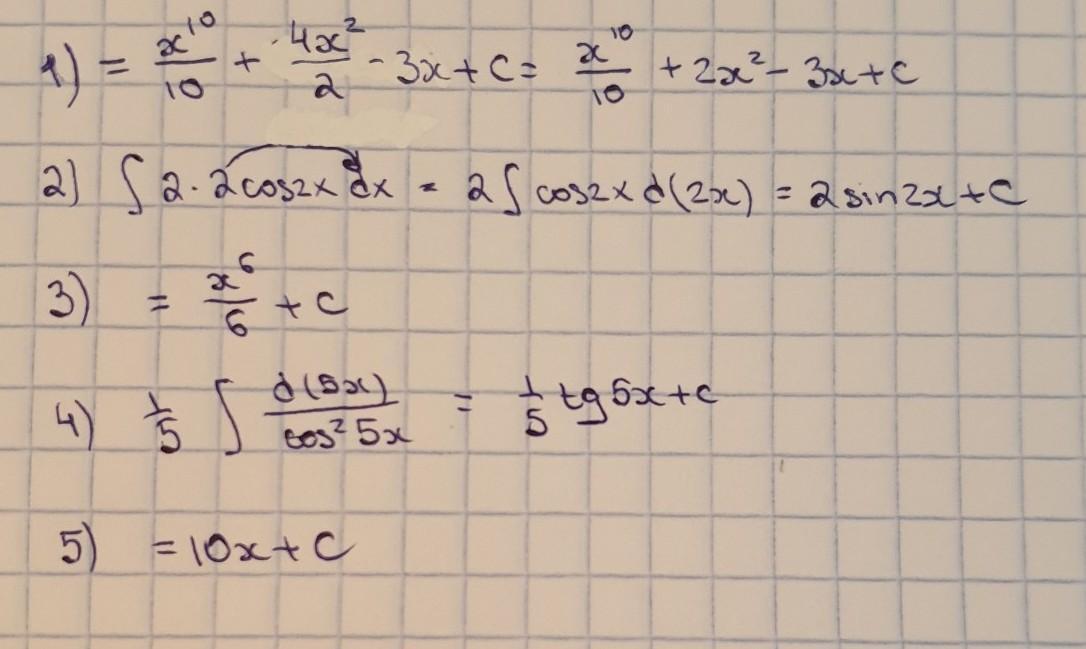 1) = x^10/10 + 4x²/2 - 3x + C = x^10/10 + 2x² - 3x + C
2) ∫ 2 · 2cos2x dx = 2∫ cos2x d(2x) = 2sin2x + C
3) = x^6/6 + C
4) 1/5 ∫ d(5x)/cos²5x = 1/5 tg5x + C
5) = 10x + C